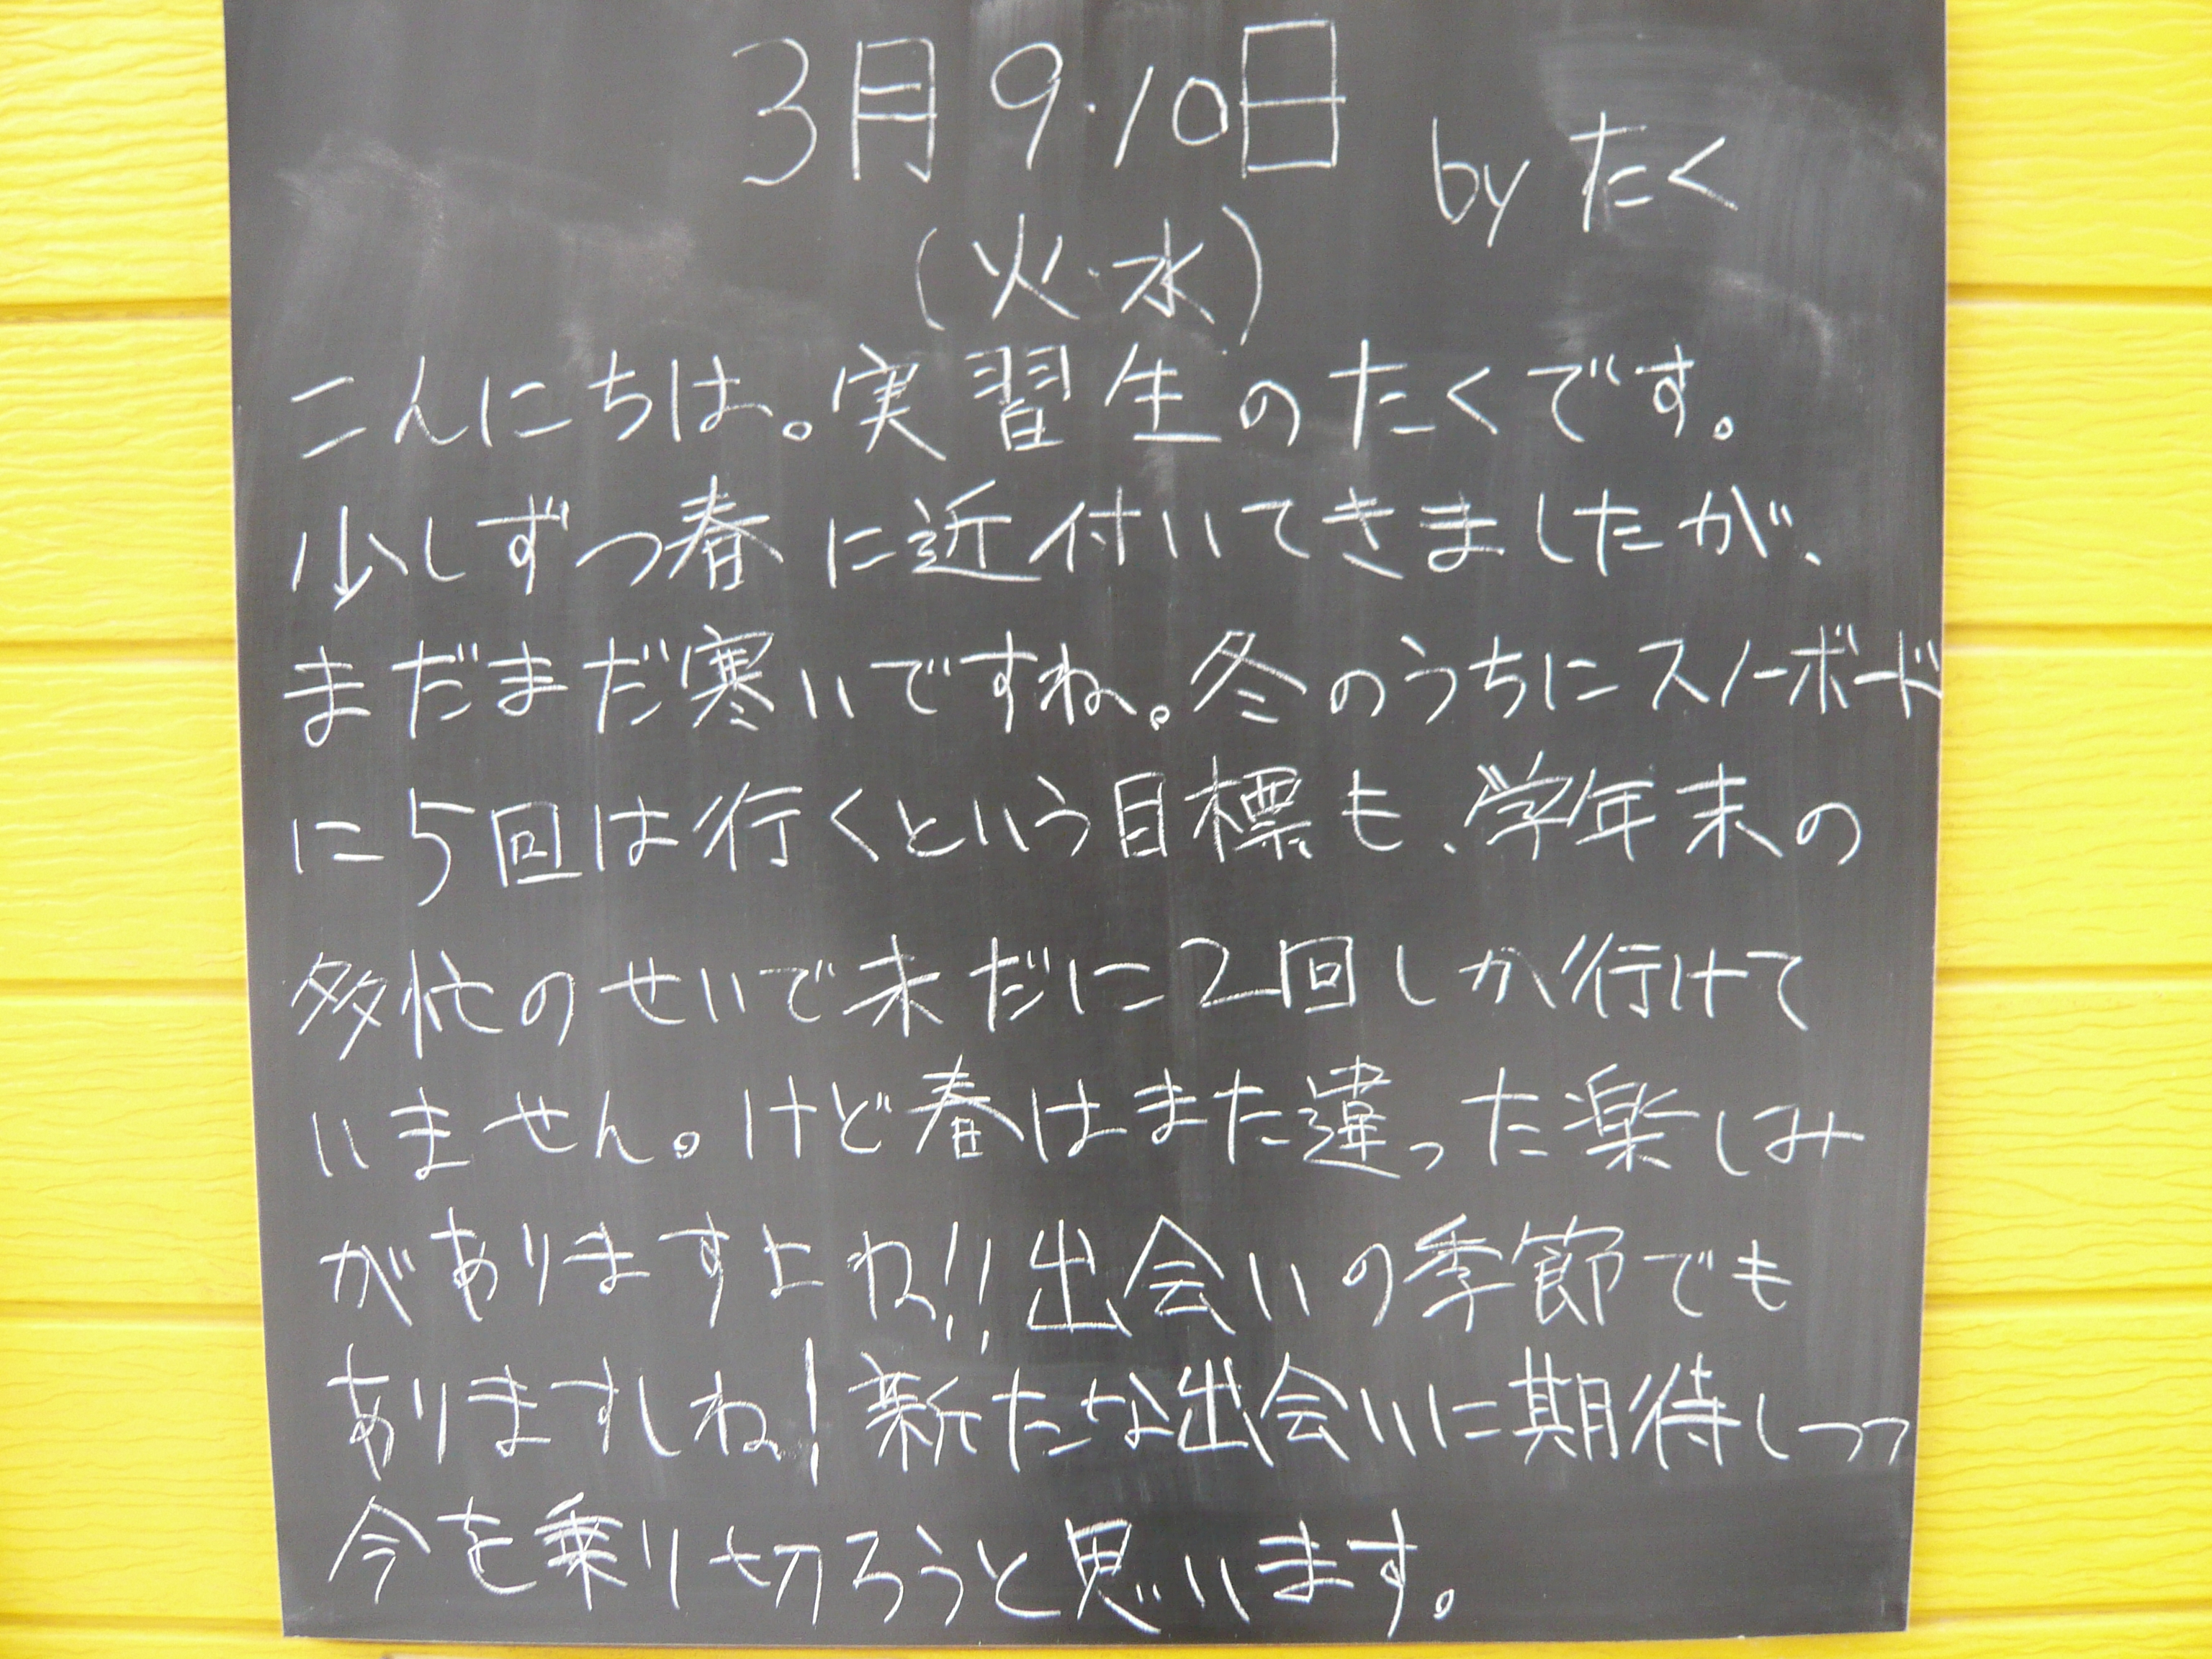 3月9・10日
by たく
(火・水)
こんにちは。実習生のたくです。
少しずつ春に近付いてきましたが、
まだまだ寒いですね。冬のうちにスノーボード
に5回は行くという目標も、学年末の
多忙のせいで未だに2回しか行けて
いません。けど春はまた違った楽しみ
がありますよね!!出会いの季節でも
ありますしね!新たな出会いに期待しつつ
今を乗り切ろうと思います。